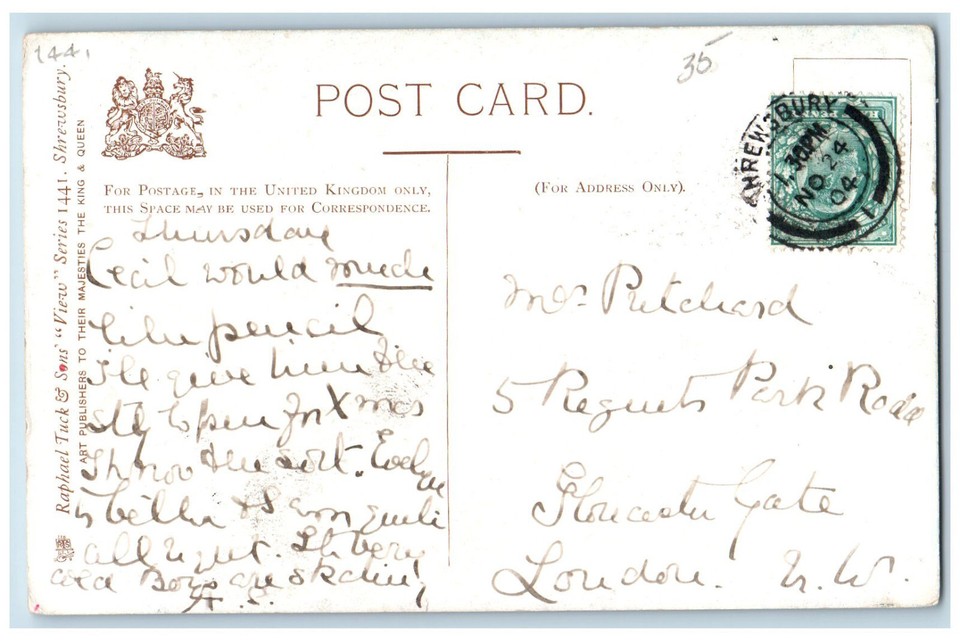 1441
35
POST CARD.
Raphael Tuck & Sons' "View" Series 1441. Shrewsbury.
ART PUBLISHERS TO THEIR MAJESTIES THE KING & QUEEN
FOR POSTAGE, IN THE UNITED KINGDOM ONLY,
THIS SPACE MAY BE USED FOR CORRESPONDENCE.
(FOR ADDRESS ONLY).
SHREWSBURY
1.30PM
NO 24
04
HALFPENNY
Thursday
Cecil would much
like pencil
I'le give him the
pen for Xmas
I know the sort. Evelyn
is better & I am quite
all right. It is very
cold Boys are skating
A...
Mrs Pritchard
5 Regents Park Road
Gloucester Gate
London. N.W.